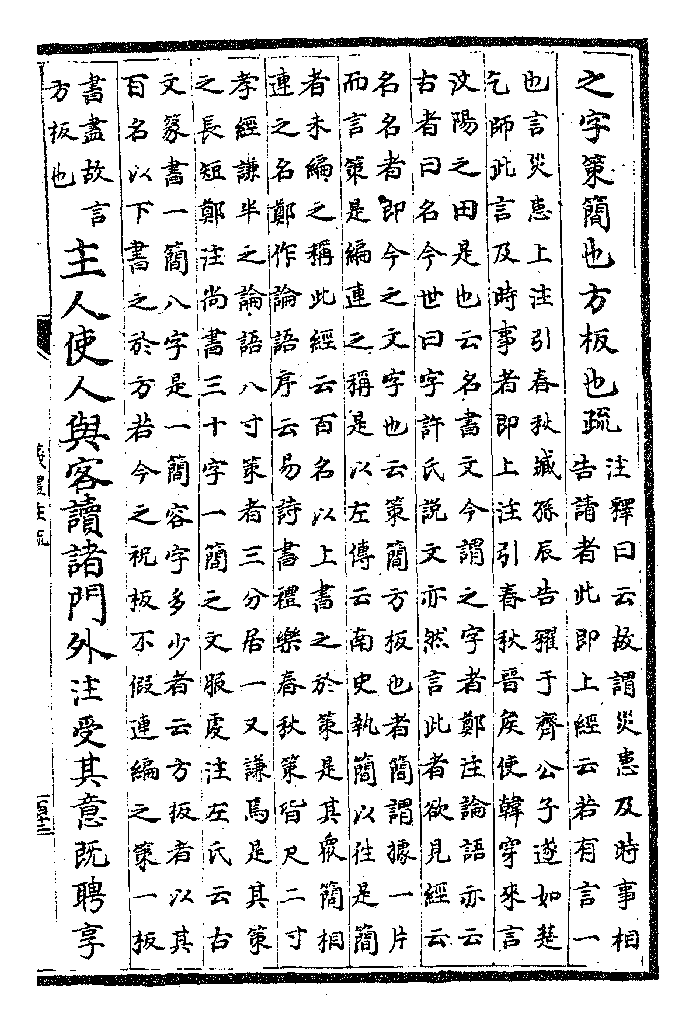 之字策簡也方板也疏
注釋曰云故謂災患及時事相
告請者此即上經云若有言一
也言災患上注引春秋臧孫辰告糴于齊公子遂如楚
乞師此言及時事者即上注引春秋晉侯使韓穿來言
汶陽之田是也云名書文今謂之字者鄭注論語亦云
古者曰名今世曰字許氏說文亦然言此者欲見經云
名名者即今之文字也云策簡方板也者簡謂據一片
而言策是編連之稱是以左傳云南史執簡以往是簡
者未編之稱此經云百名以上書之於策是其衆簡相
連之名鄭作論語序云易詩書禮樂春秋策皆尺二寸
孝經謙半之論語八寸策者三分居一又謙焉是其策
之長短鄭注尚書三十字一簡之文服虔注左氏云古
文篆書一簡八字是一簡容字多少者云方板者以其
百名以下書之於方若今之祝板不假連編之策一板
書盡故言
方板也
主人使人與客讀諸門外注受其意既聘享